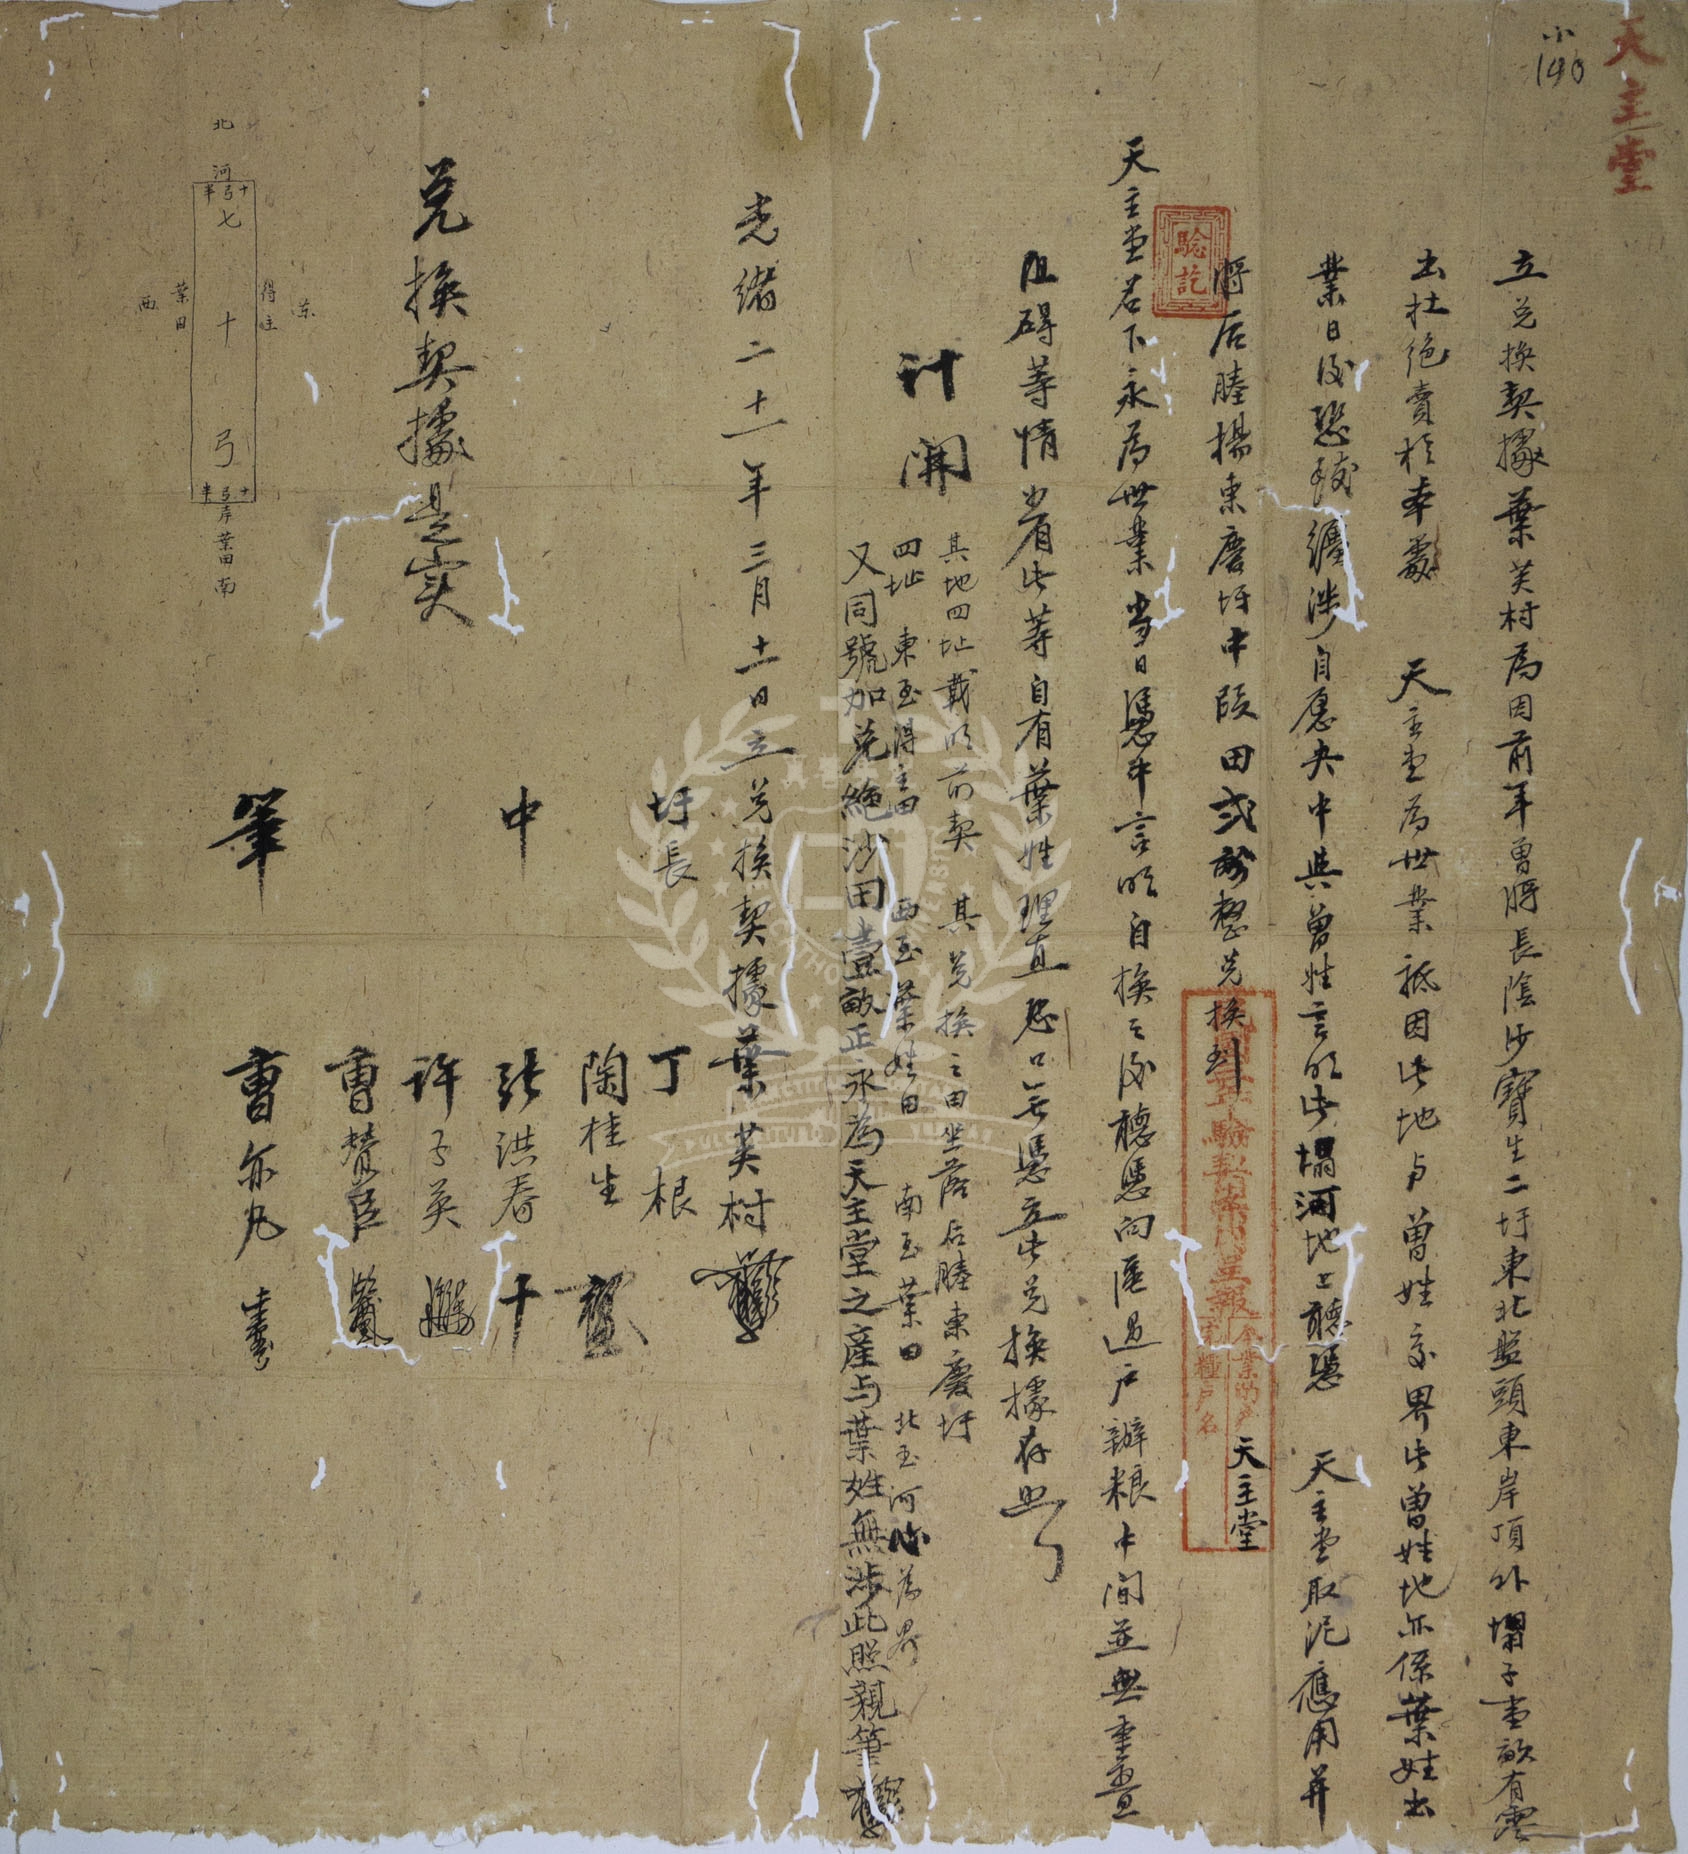 天主堂
小140
立兑換契據葉芙村為因前年曾將長陰沙寶生二圩東北盤頭東岸頂外塌子壹畝有零
出杜絕賣於奉處 天主堂為世業祗因此地与曾姓交界此曾姓地亦係葉姓出
業日後恐致纏涉自愿央中與曾姓言明此塌河地上聽憑 天主堂取泥應用并
將后塍揚東慶圩中段田弍畝整兑換到
天主堂名下永為世業當日憑中言明自換之後聽憑向匯過戶辦粮中間並無重疊
阻碍等情當有此等自有葉姓理直恐口無憑立此兑換據存照
驗訖
驗契案內呈報
本業的戶 天主堂
完糧戶名
計開 其地四址載明前契 其兑換之田坐落后塍東慶圩
四址 東至得主田 西至葉姓田 南至葉田 北至河心為界
又同號加兑絕沙田壹畝正永為天主堂之產与葉姓無涉此照親筆
光緒二十一年三月十一日立兑換契據葉芙村
圩長 丁根
陶桂生
中 張洪春 十
許子英
曹贊臣
筆 曹亦凡 書
兑換契據是实
北
河
十弓半
七十弓
十弓半
东
得主
葉田
西
岸葉田南